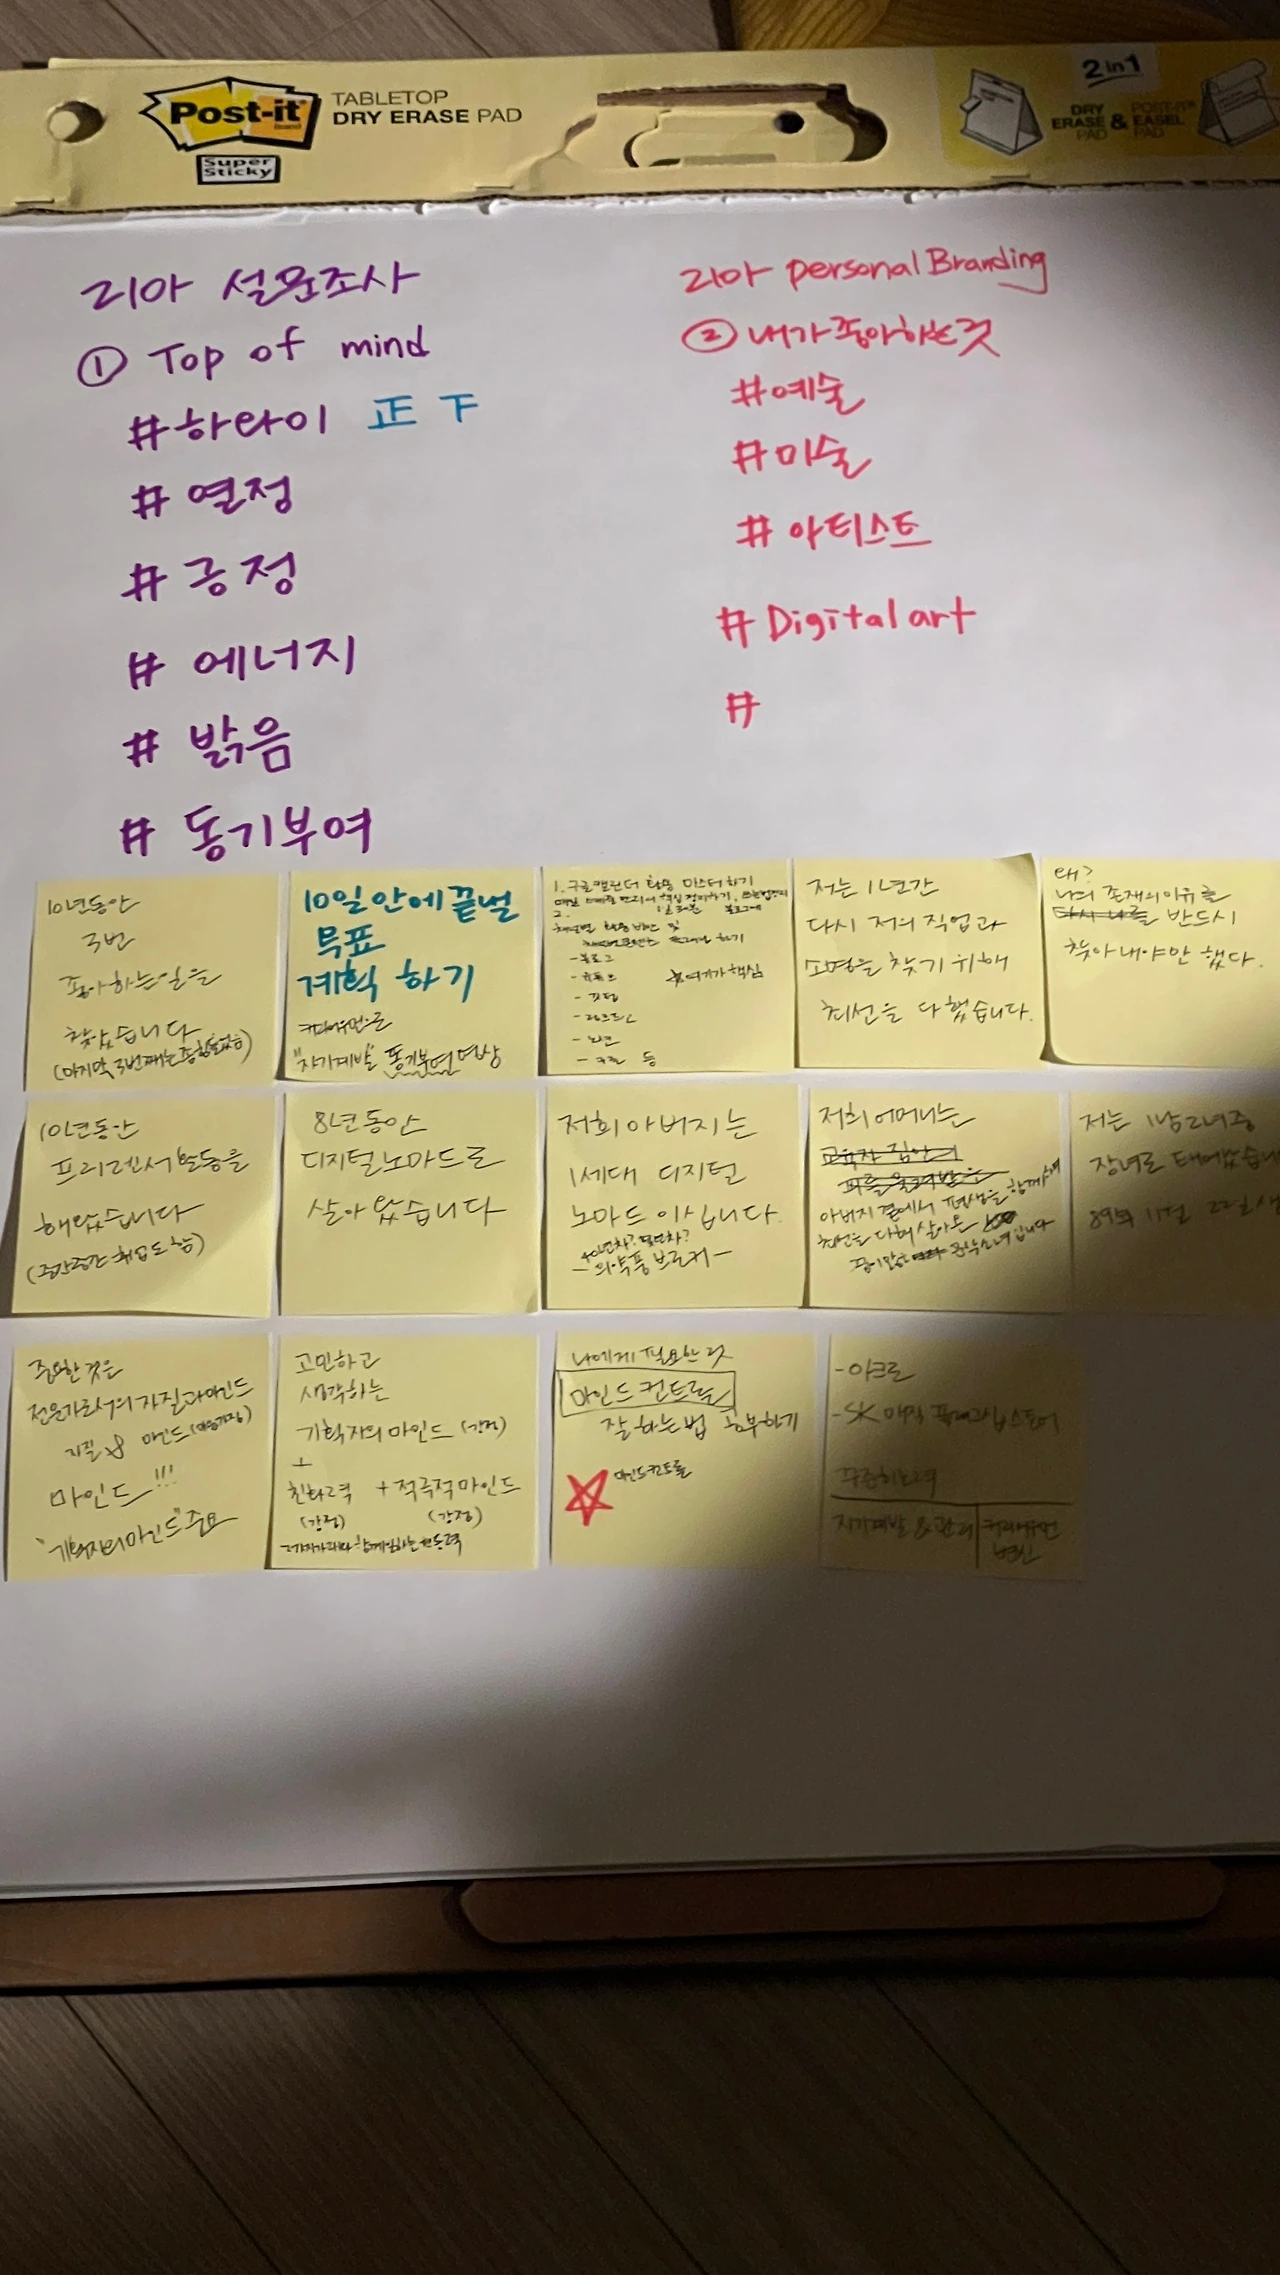 Post-it
Brand
Super
Sticky
TABLETOP
DRY ERASE PAD
2 in 1
DRY
ERASE
PAD
&
POST-IT®
EASEL
PAD
리아 설문조사
① Top of mind
#하타이 正 下
# 열정
# 긍정
# 에너지
# 밝음
# 동기부여
리아 personal Branding
② 내가 좋아하는 것
#예술
#미술
# 아티스트
# Digital art
#
10년동안
3번
좋아하는일을
찾았습니다
10일안에 끝낼
목표
계획 하기
"자기계발" 동기부여 영상
1. 구글캘린더 활용 마스터하기
2.
- 블로그
여기가 핵심
저는 1년간
다시 저의 직업과
소명을 찾기 위해
최선을 다했습니다.
왜?
나의 존재의이유를
다시 나를 반드시
찾아내야만 했다.
10년동안
프리랜서 활동을
해왔습니다
(중간중간 취업도 함)
8년동안
디지털노마드로
살아왔습니다
저희 아버지는
1세대 디지털
노마드 이십니다.
- 의약품 브로커 -
저희 어머니는
교육자 집안의
피를 물려받은
아버지 곁에서 평생을 함께하며
최선을 다해 살아온
저는 1남2녀중
장녀로 태어났습니
중요한 것은
전문가로서의 자질과 마인드
자질 & 마인드
마인드!!!
"기획자의 마인드" 중요
고민하고
생각하는
기획자의 마인드 (강점)
+
친화력 + 적극적 마인드
(강점) (강점)
나에게 필요한 것
마인드 컨트롤
잘 하는 법 공부하기
마인드컨트롤
- 아크로
자기계발 & 관리